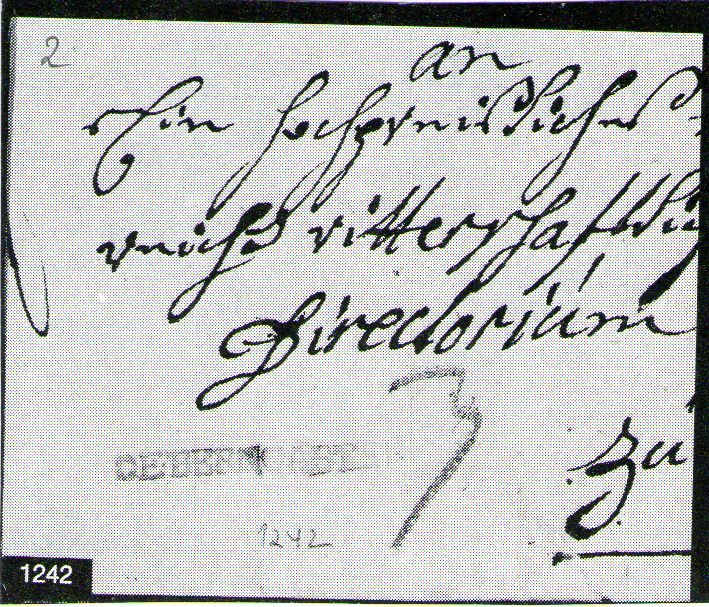 2.
an
Ein hochpreißliches
reichs ritterschafftlich
Directorium
3
zu
1242
1242